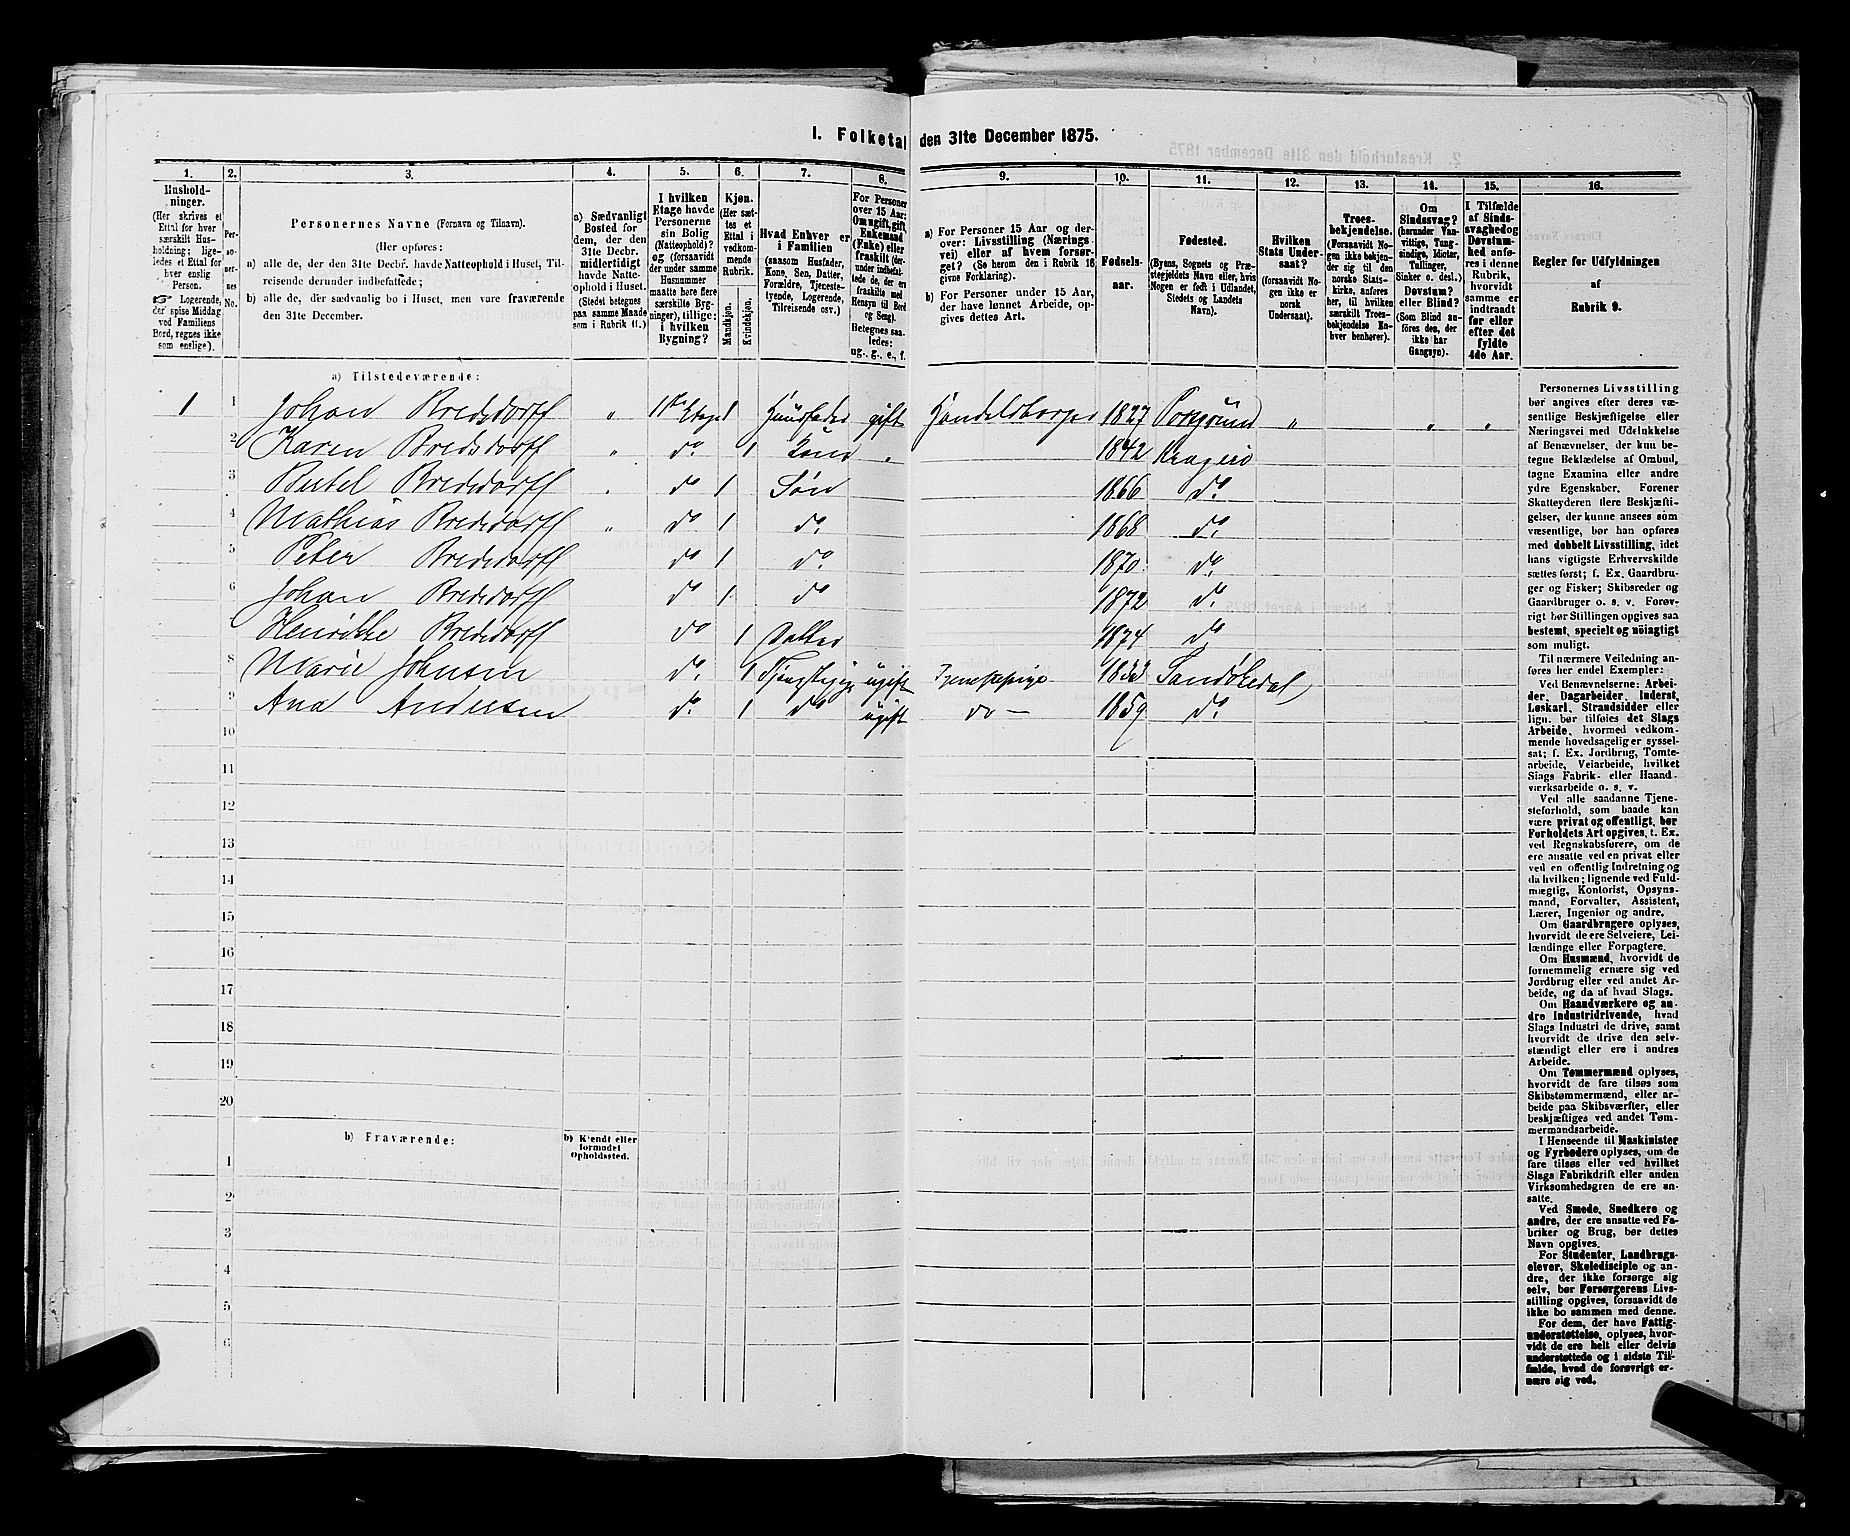 I. Folketal den 31te December 1875.
1. 2. 3. 4. 5. 6. 7. 8. 9. 10. 11. 12. 13. 14. 15. 16.
Hushold-
ninger.
(Her skrives et
Ettal for hver
særskilt Hus-
holdning; lige-
ledes et Ettal for
hver enslig
Person.
☞ Logerende,
der spise Middag
ved Familiens
Bord, regnes ikke
som enslige).
Per-
so-
ner-
nes
No.
Personernes Navne (Fornavn og Tilnavn).
(Her opføres:
a) alle de, der den 31te Decbr. havde Natteophold i Huset, Til-
reisende derunder indbefattede;
b) alle de, der sædvanlig bo i Huset, men vare fraværende
den 31te December.
a) Sædvanligt
Bosted for
dem, der den
31te Decbr.
midlertidigt
havde Natte-
ophold i Huset.
(Stedet betegnes
paa samme Maade
som i Rubrik 11.)
I hvilken
Etage havde
Personerne
sin Bolig
(Natteophold)?
og (forsaavidt
der under samme
Husnummer
maatte høre flere
særskilte Byg-
ninger), tillige:
i hvilken
Bygning?
Kjøn.
(Her sæt-
tes et
Ettal i
vedkom-
mende
Rubrik.
Mandkjøn.
Kvindekjøn.
Hvad Enhver er
i Familien
(saasom Husfader,
Kone, Søn, Datter,
Forældre, Tjeneste-
tyende, Logerende,
Tilreisende osv.)
For Personer
over 15 Aar:
Om ugift, gift,
Enkemand
(Enke) eller
fraskilt (der-
under indbefat-
tede de, der ere
fraskilte med
Hensyn til Bord
og Seng).
Betegnes saa-
ledes:
ug., g., e., f.
a) For Personer 15 Aar og der-
over: Livsstilling (Nærings-
vei) eller af hvem forsør-
get? (Se herom den i Rubrik 16
givne Forklaring).
b) For Personer under 15 Aar,
der have lønnet Arbeide, op-
gives dettes Art.
Fødsels-
aar.
Fødested.
(Byens, Sognets og Præ-
stegjeldets Navn eller, hvis
Nogen er født i Udlandet,
Stedets og Landets
Navn).
Hvilken
Stats Under-
saat?
(forsaavidt No-
gen ikke er
norsk
Undersaat).
Troes-
bekjendelse.
(Forsaavidt No-
gen ikke bekjen-
der sig til den
norske Stats-
kirke, anføres
her, til hvilken
særskilt Troes-
bekjendelse En-
hver henhører).
Om
Sindssvag?
(herunder Van-
vittige, Tung-
sindige, Idioter,
Tullinger,
Sinker o. desl.)
Døvstum?
eller Blind?
(Som Blind an-
føres den, der
ikke har
Gangsyn).
I Tilfælde
af Sinds-
svaghed og
Døvstum-
hed anfø-
res i denne
Rubrik,
hvorvidt
samme er
indtraadt
før eller
efter det
fyldte
4de Aar.
Regler for Udfyldningen
af
Rubrik 9.
a) Tilstedeværende:
1 1 Johan Bredsdorff " 1ste Etage 1 Huusfader gift Handelsborger 1827 Porsgrund " " "
2 Karen Bredsdorff " do 1 Kone " 1842 Kragerø
3 Bertel Bredsdorff " do 1 Søn 1866 do
4 Mathias Bredsdorff " do 1 do 1868 do
5 Peter Bredsdorff do 1 do 1870 do
6 Johan Bredsdorff do 1 do 1872 do
Henrikke Bredsdorff do 1 Datter 1874 do
8 Marie Johnsen do 1 ugift Tjenestepige 1853 Sandøkedal
9 Ana Andersen do 1 do ugift do — 1859 do
10
11
12
13
14
15
16
17
18
19
20
b) Fraværende:
b) Kjendt eller
formodet
Opholdssted.
1
2
3
4
5
6
Personernes Livsstilling
bør angives efter deres væ-
sentlige Beskjæftigelse eller
Næringsvei med Udelukkelse
af Benævnelser, der kun be-
tegne Beklædelse af Ombud,
tagne Examina eller andre
ydre Egenskaber. Forener
Skatteyderen flere Beskjæfti-
gelser, der kunne ansees som
væsentlige, bør han opføres
med dobbelt Livsstilling, idet
hans vigtigste Erhvervskilde
sættes først; f. Ex. Gaardbru-
ger og Fisker; Skibsreder og
Gaardbruger o. s. v. Forøv-
rigt bør Stillingen opgives saa
bestemt, specielt og nøiagtigt
som muligt.
Til nærmere Veiledning an-
føres her endel Exempler:
Ved Benævnelserne: Arbei-
der, Dagarbeider, Inderst,
Løskarl, Strandsidder eller
lign. bør tilføies det Slags
Arbeide, hvormed vedkom-
mende hovedsagelig er syssel-
sat; f. Ex. Jordbrug, Tomte-
arbeide, Veiarbeide, hvilket
Slags Fabrik- eller Haand-
værksarbeide o. s. v.
Ved alle saadanne Tjene-
steforhold, som baade kan
være privat og offentligt, bør
Forholdets Art opgives, f. Ex.
ved Regnskabsførere, om de
ere ansatte ved en privat eller
ved en offentlig Indretning og
da hvilken; lignende ved Fuld-
mægtig, Kontorist, Opsyns-
mand, Forvalter, Assistent,
Lærer, Ingeniør og andre.
Om Gaardbrugere oplyses,
hvorvidt de ere Selveiere, Lei-
lændinge eller Forpagtere.
Om Husmænd, hvorvidt de
fornemmelig ernære sig ved
Jordbrug eller ved andet Ar-
beide, og da af hvad Slags.
Om Haandværkere og an-
dre Industridrivende, hvad
Slags Industri de drive, samt
hvorvidt de drive den selv-
stændigt eller ere i andres
Arbeide.
Om Tømmermænd oplyses,
hvorvidt de fare tilsøs som
Skibstømmermænd, eller ar-
beide paa Skibsværfter, eller
beskjæftiges ved andet Tøm-
mermandsarbeide.
I Henseende til Maskinister
og Fyrbødere oplyses, om de
fare tilsøs eller ved hvilket
Slags Fabrikdrift eller anden
Virksomhedsgren de ere an-
satte.
Ved Smede, Snedkere og
andre, der ere ansatte ved Fa-
briker og Brug, bør dettes
Navn opgives.
For Studenter, Landbrugs-
elever, Skoledisciple og an-
dre, der ikke forsørge sig
selv, bør Forsørgerens Livs-
stilling opgives, forsaavidt de
ikke bo sammen med denne.
For dem, der have Fattig-
understøttelse, oplyses, hvor-
vidt de ere helt eller delvis
understøttede og i sidste Til-
fælde, hvad de forøvrigt er-
nære sig ved.